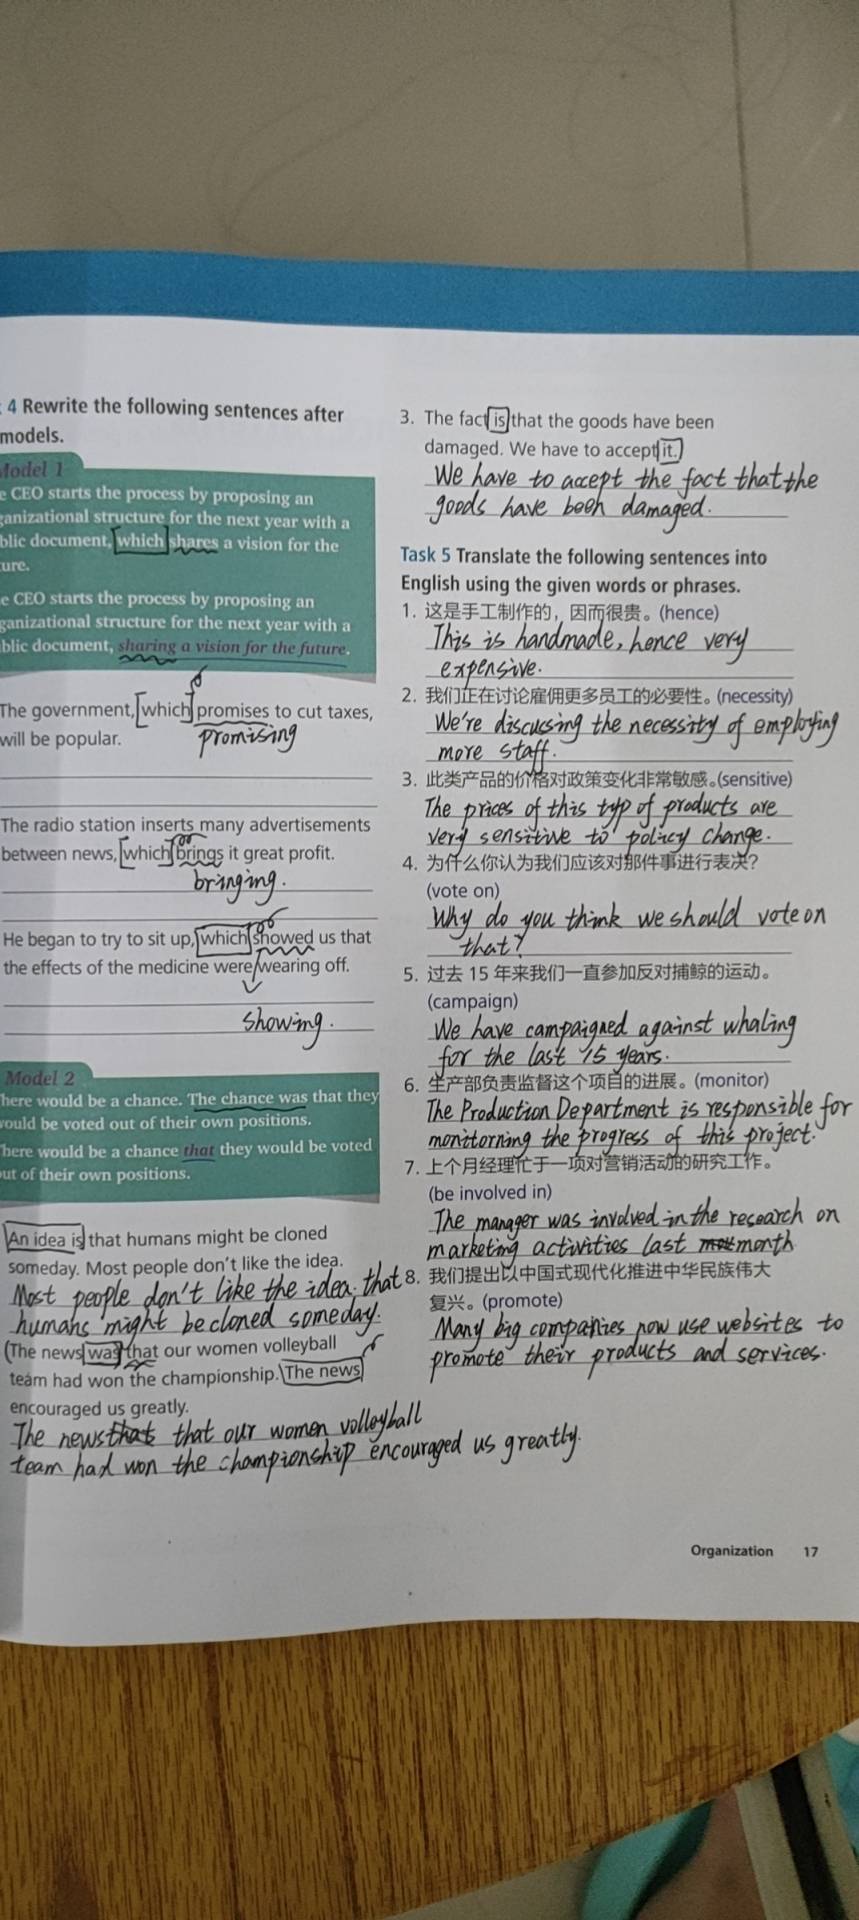 4 Rewrite the following sentences after
models.
Model 1
CEO starts the process by proposing an
organizational structure for the next year with a
public document, which shares a vision for the
future.
CEO starts the process by proposing an
organizational structure for the next year with a
public document, sharing a vision for the future.
The government, which promises to cut taxes,
will be popular. promising
The radio station inserts many advertisements
between news, which brings it great profit.
bringing.
He began to try to sit up, which showed us that
the effects of the medicine were wearing off.
showing.
Model 2
There would be a chance. The chance was that they
would be voted out of their own positions.
There would be a chance that they would be voted
out of their own positions.
An idea is that humans might be cloned
someday. Most people don't like the idea.
Most people don't like the idea. that
humans might be cloned someday.
The news was that our women volleyball
team had won the championship. The news
encouraged us greatly.
The news that our women volleyball
team had won the championship encouraged us greatly.
3. The fact is that the goods have been
damaged. We have to accept it.
We have to accept the fact that the
goods have been damaged.
Task 5 Translate the following sentences into
English using the given words or phrases.
1. 这是手工制作的，因而很贵。(hence)
This is handmade, hence very
expensive.
2. 我们正在讨论雇佣更多员工的必要性。(necessity)
We're discussing the necessity of employing
more staff.
3. 此类产品的价格对政策变化非常敏感。(sensitive)
The prices of this typ of products are
very sensitive to policy change.
4. 为什么你认为我们应该对那件事进行表决？
(vote on)
Why do you think we should vote on
that?
5. 过去 15 年来我们一直参加反对捕鲸的运动。
(campaign)
We have campaigned against whaling
for the last 15 years.
6. 生产部负责监督这个项目的进展。(monitor)
The Production Department is responsible for
monitorning the progress of this project.
7. 上个月经理忙于一项对营销活动的研究工作。
(be involved in)
The manager was involved in the research on
marketing activities last month
8. 我们提出以中国式现代化推进中华民族伟大
复兴。(promote)
Many big companies now use websites to
promote their products and services.
Organization 17